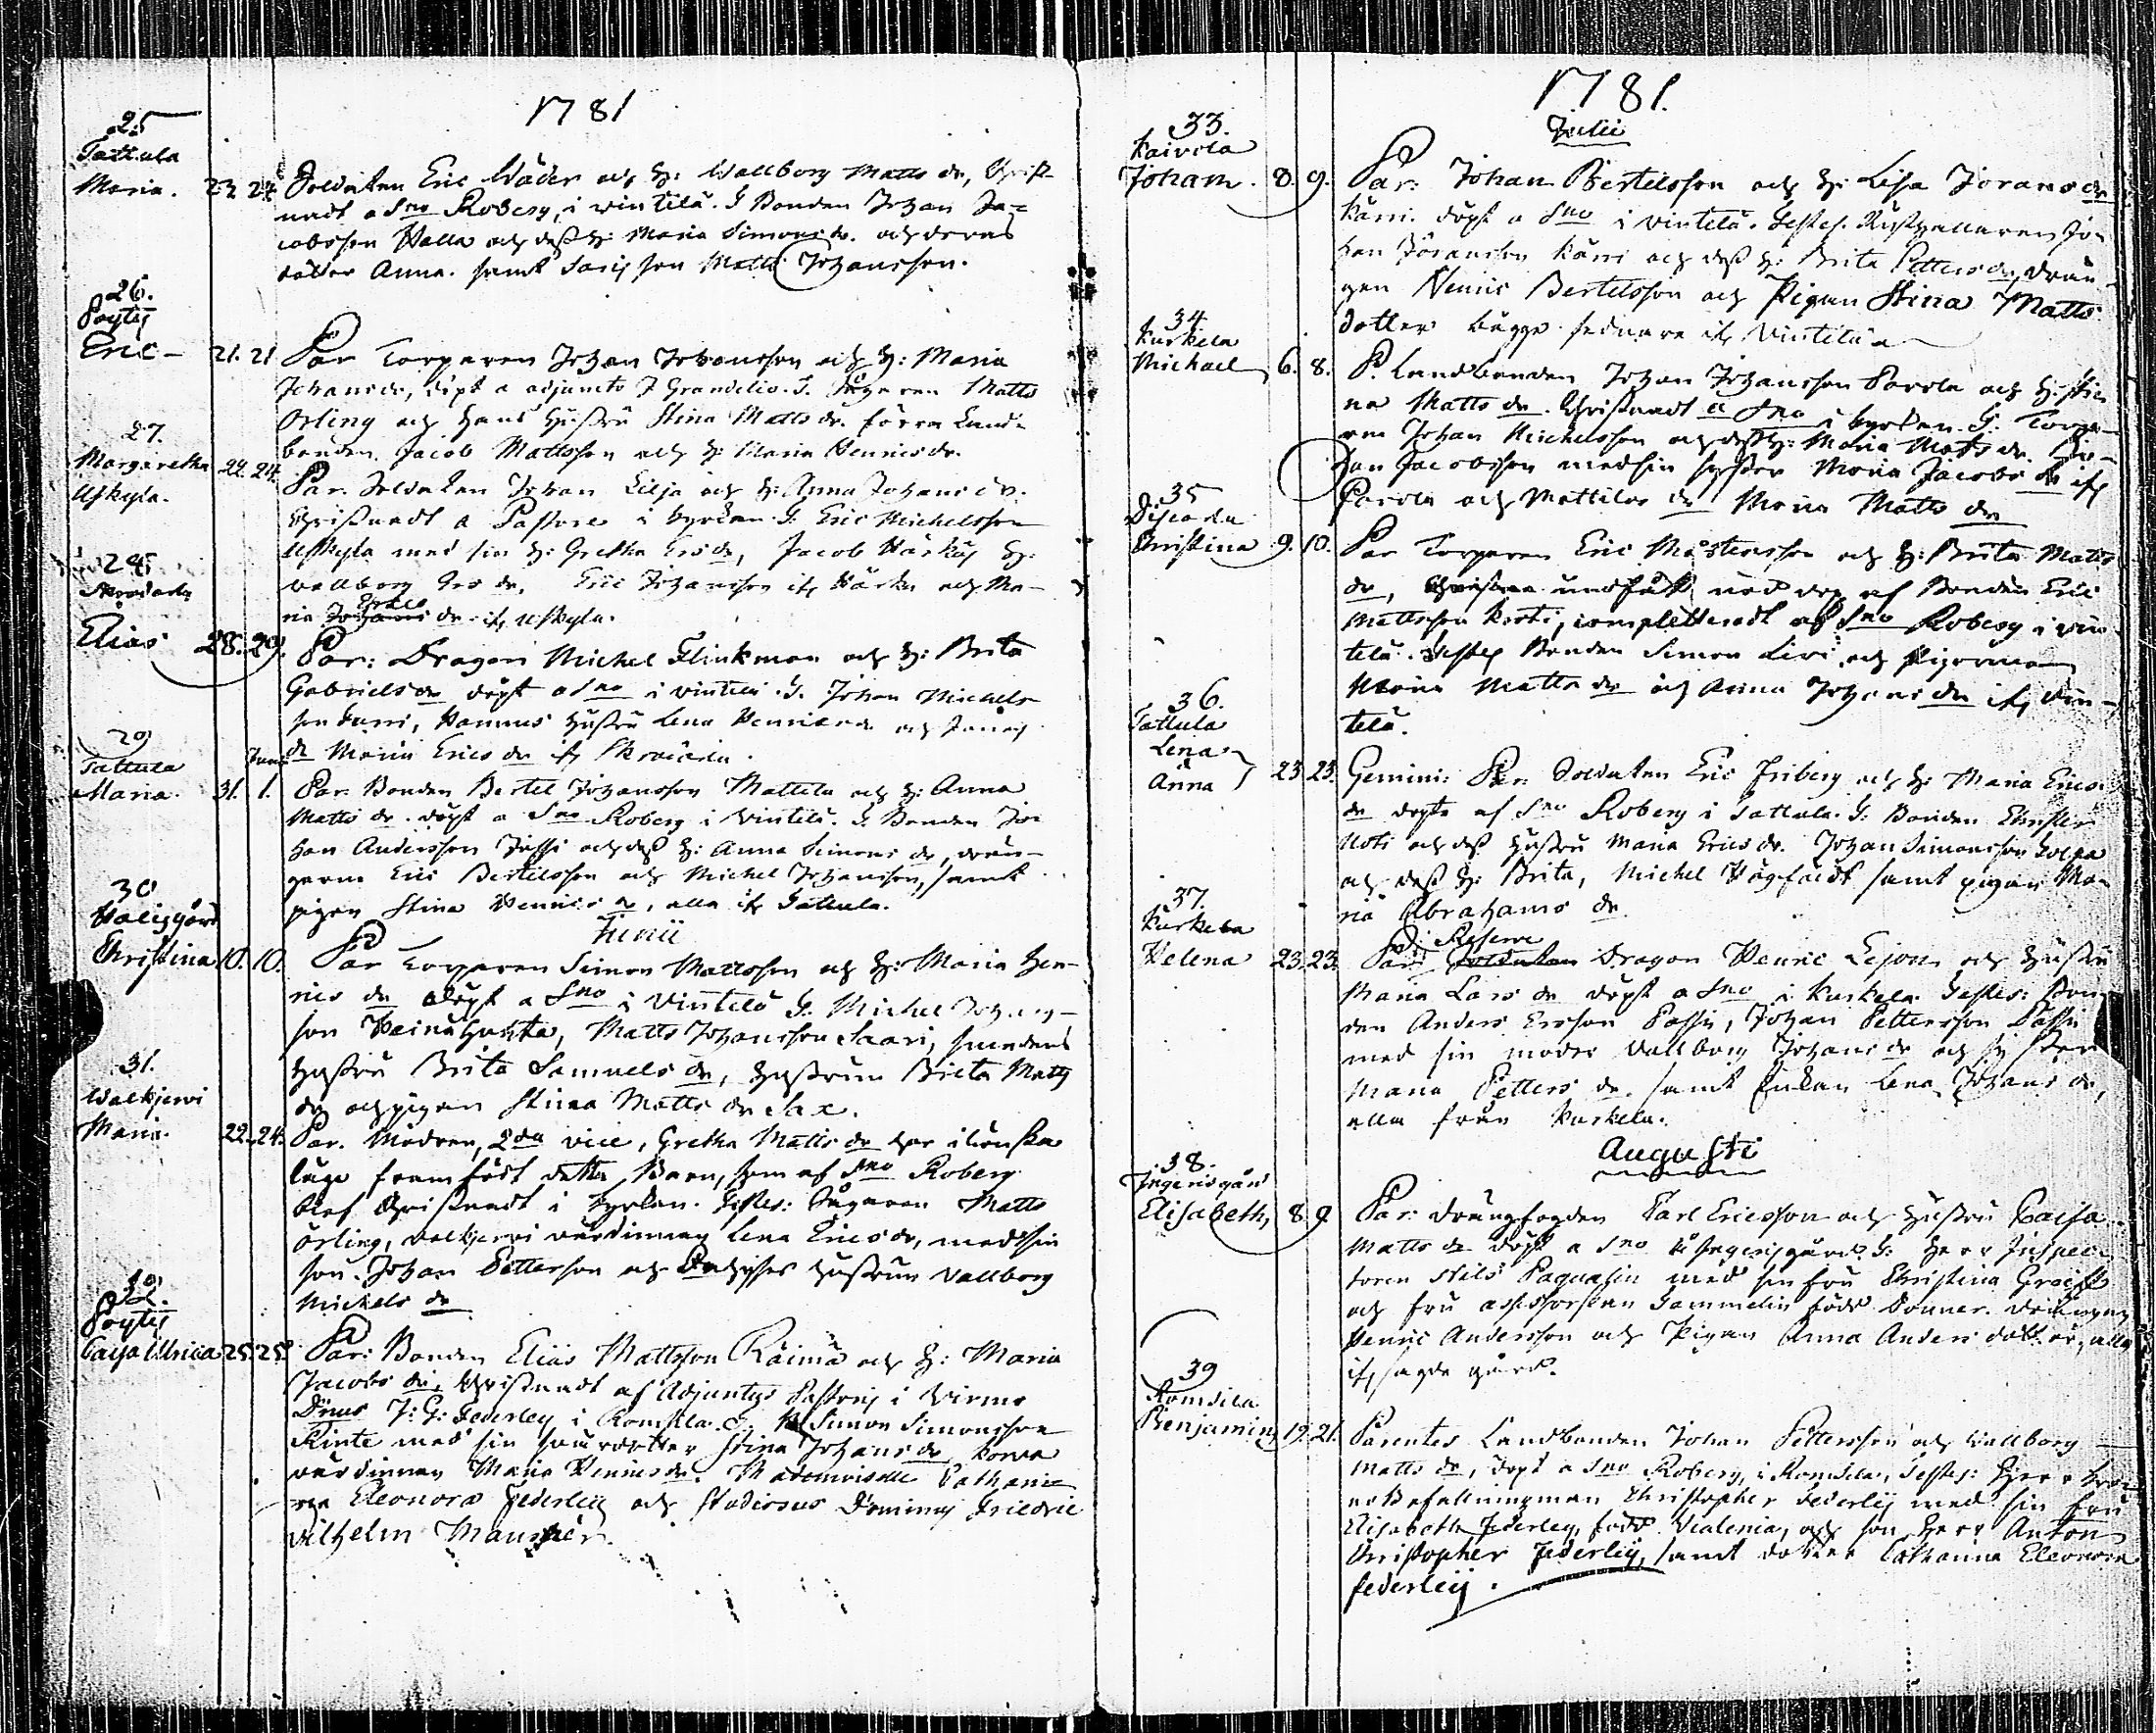 1781
25
Tattula
Maria. 23 24 Soldaten Eric Wäder och H: Wallborg Matts dr, Christ-
nadt a Sno Roberg, i vintelä. G Bonden Johan Ja-
cobsson Halla och dess H: Maria Simons dr. och deras
dotter Anna. samt Matts Johansson.
26.
Pöytij
Eric - 21. 21 Par Torparen Johan Johansson och H: Maria
Johans dr, döpt a adjuncto J Grandelio. G. Matts
Örling och hans Hustru Stina Matts dr. förra Land-
bonden Jacob Mattsson och H: Maria Henrics dr.
27.
Margaretha 22. 24. Par. Soldaten Johan Lilja och H: Anna Johans dr.
Uskyla. Christnadt a Pastore i kyrkan. G. Eric Michelsson
Uskyla med sin H: Gretha Ers dr, Jacob H:
Wallborg Ers dr, Eric Johansson och Ma-
ria Johans Erics dr. if. Uskyla.
28.
Elias 28. 29. Par: Dragon Michel Flinkman och H: Brita
Gabriels dr döpt a Sno i vintelä. G. Johan Michels-
son hustru Lena Henrics dr och
dr Maria Erics dr if
29
Tattula Juni
Maria. 31. 1. Par. Bonden Bertel Johansson Mattila och H: Anna
Matts dr. döpt a Sno Roberg i Vintelä. G. Bonden Jo-
han Andersson Jussi och dess H: Anna Simons dr, drän-
garne Eric Bertelsson och Michel Johansson, samt
pigan Stina Henrics dr, alla if Tattula.
Junii
30
Haligård
Christina 10. 10. Par Torparen Simon Mattsson och H: Maria Hen-
rics dr döpt a Sno i Vintelä G. Michel Johans-
son Matts Johansson Saari, smedens
hustru Brita Samuels dr, hustrun Brita Matts
dr och pigan Stina Matts dr Sax.
31.
Walkjervi
Maria. 22. 24. Par. Modren, 2da vice, Gretha Matts dr har i lönska
läge framfödt detta Barn, som af Sno Roberg
blef Christnadt i kyrkan. Testes: Matts
Örling, walkjervi värdinnan Lena Erics dr, med sin
son. Johan Petterson och hustrun Vallborg
Michels dr
32.
Pöytij
Caisa Ulrica 25. 25. Par: Bonden Elias Mattsson Räimä och H: Maria
Jacobs dr. Christnadt af Adjuntus Pastoris i Virmo
Dnus J: G: Federley i Romsila. G. Simon Simonsson
Rinte med sin Stina Johans dr
värdinnan Maria Henrics dr. Mademoiselle Catharina
Eleonora Federleij och Studiosus Dominus Friedric
Vilhelm

1781.
Julii
33.
Kaivola
Joham. 8. 9. Par: Johan Bertelsson och H: Lisa Jörans dr
Kärri. döpt a Sno i Vintelä. Testes. Rusthållaren Jo-
han Jöransson Kärri och dess H: Brita Petters dr, drän-
gen Henric Bertelsson och Pigan Stina Matts
dotter bägge sednare if Vintelä
34
Kurkela
Michael 6. 8. P. Landbonden Johan Johansson Parola och H: Sti-
na Matts dr. Christnadt a Sno i kyrkan. G. Torpa-
ren Johan Michelsson och dess H: Maria Matts dr. Jo-
han Jacobsson med sin syster Maria Jacobs dr if
Parola och Mattilas dr Maria Matts dr
35
Christina 9. 10. Par Torparen Eric Mårtensson och H: Brita Matts
dr, undfått nöd dop af Bonden Eric
Mattsson Korti, completteradt af Sno Roberg i vin-
telä. Testes Bonden Simon Livi och pigorna
Maria Matts dr och Anna Johans dr if Vin-
telä.
36.
Tattula
Lena
Anna 23. 23. Gemini: Par. Soldaten Eric Friberg och H: Maria Erics
dr döpte af Sno Roberg i Tattula. G. Bonden Christer
Uoti och dess hustru Maria Erics dr. Johan Simonsson
och dess H: Brita, Michel Högfält samt pigan Ma-
ria Abrahams dr.
37.
Kurkela
Helena 23. 23. Par: Soldaten Reserve Dragon Henric Lejon och hustru
Maria Lars dr döpt a Sno i Kurkela. Testes: Bon-
den Anders Ersson Passi, Johan Pettersson Passi
med sin moder Vallborg Johans dr och syster
Maria Petters dr. samt Enkan Lena Johans dr,
alla från Kurkela.
Augusti
38.
Ingerisgård
Elisabeth, 8. 9. Par: drängfogden Karl Ericsson och hustru Caisa
Matts dr döpt a Sno å Ingerisgård. G: Herr Inspec-
toren Nils Paqualin med sin fru Christina
och fru assessorskan Gammelin född Donner. drängen
Henric Andersson och Pigan Anna Anders dotter, alla
if sagde gård.
39
Romsila
Benjamin 19. 21. Parentes Landbonden Johan Pettersson och Wallborg
Matts dr, döpt a Sno Roberg, i Romsila, Testes: Herr Kro-
nobefallningsman Christopher Federleij med sin fru
Elisabeth Federley, född Vialenia, och son Herr Anton
Christopher Federleij, samt dotter Catharina Eleonora
federleij.